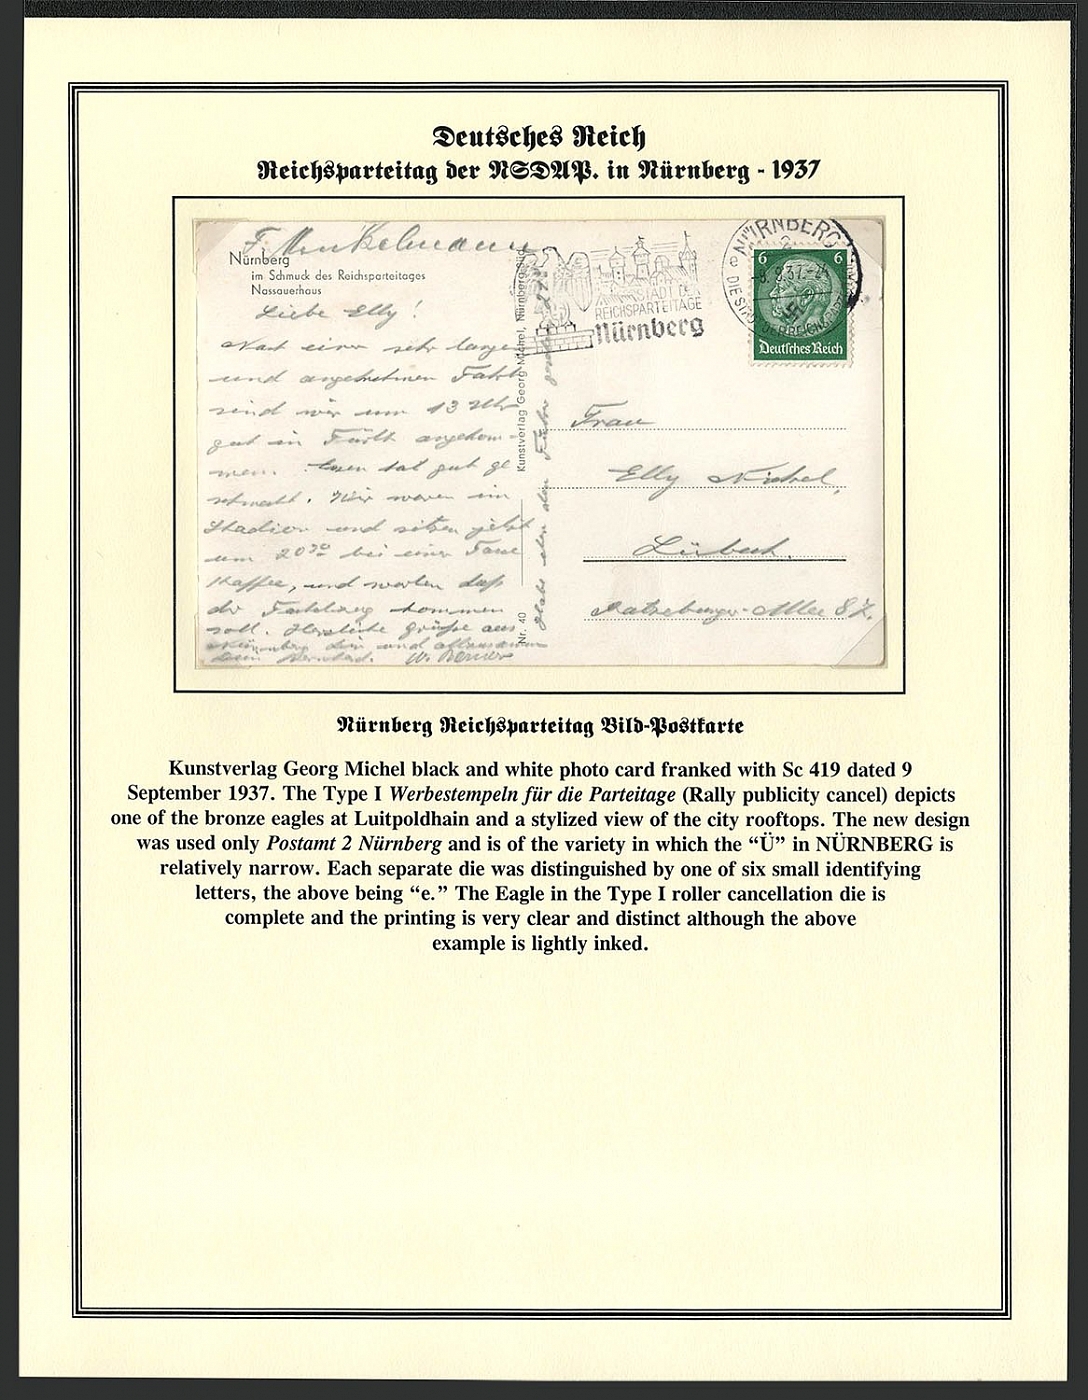 Deutsches Reich
Reichsparteitag der NSDAP. in Nürnberg - 1937
Nürnberg
im Schmuck des Reichsparteitages
Nassauerhaus
Liebe Elly!
Nach einer sehr langen
und angenehmen Fahrt
sind wir um 13 Uhr
gut in Fürth angekom-
men. Essen hat gut ge
schmeckt. Wir waren im
Stadion und sitzen jetzt
um 20³⁰ bei einer Tasse
Kaffee, und warten daß
der Fackelzug kommen
soll. Herzliche Grüße aus
Nürnberg
Habe den Führer
Kunstverlag Georg Michel, Nürnberg
Nr. 40
STADT DER
REICHSPARTEITAGE
Nürnberg
NÜRNBERG
2
e
9.9.37
DIE STADT DER REICHSPARTEITAGE
6 6
Deutsches Reich
Frau
Elly
Lübeck.
Ratzeburger-Allee
Nürnberg Reichsparteitag Bild-Postkarte
Kunstverlag Georg Michel black and white photo card franked with Sc 419 dated 9
September 1937. The Type I Werbestempeln für die Parteitage (Rally publicity cancel) depicts
one of the bronze eagles at Luitpoldhain and a stylized view of the city rooftops. The new design
was used only Postamt 2 Nürnberg and is of the variety in which the “Ü” in NÜRNBERG is
relatively narrow. Each separate die was distinguished by one of six small identifying
letters, the above being “e.” The Eagle in the Type I roller cancellation die is
complete and the printing is very clear and distinct although the above
example is lightly inked.